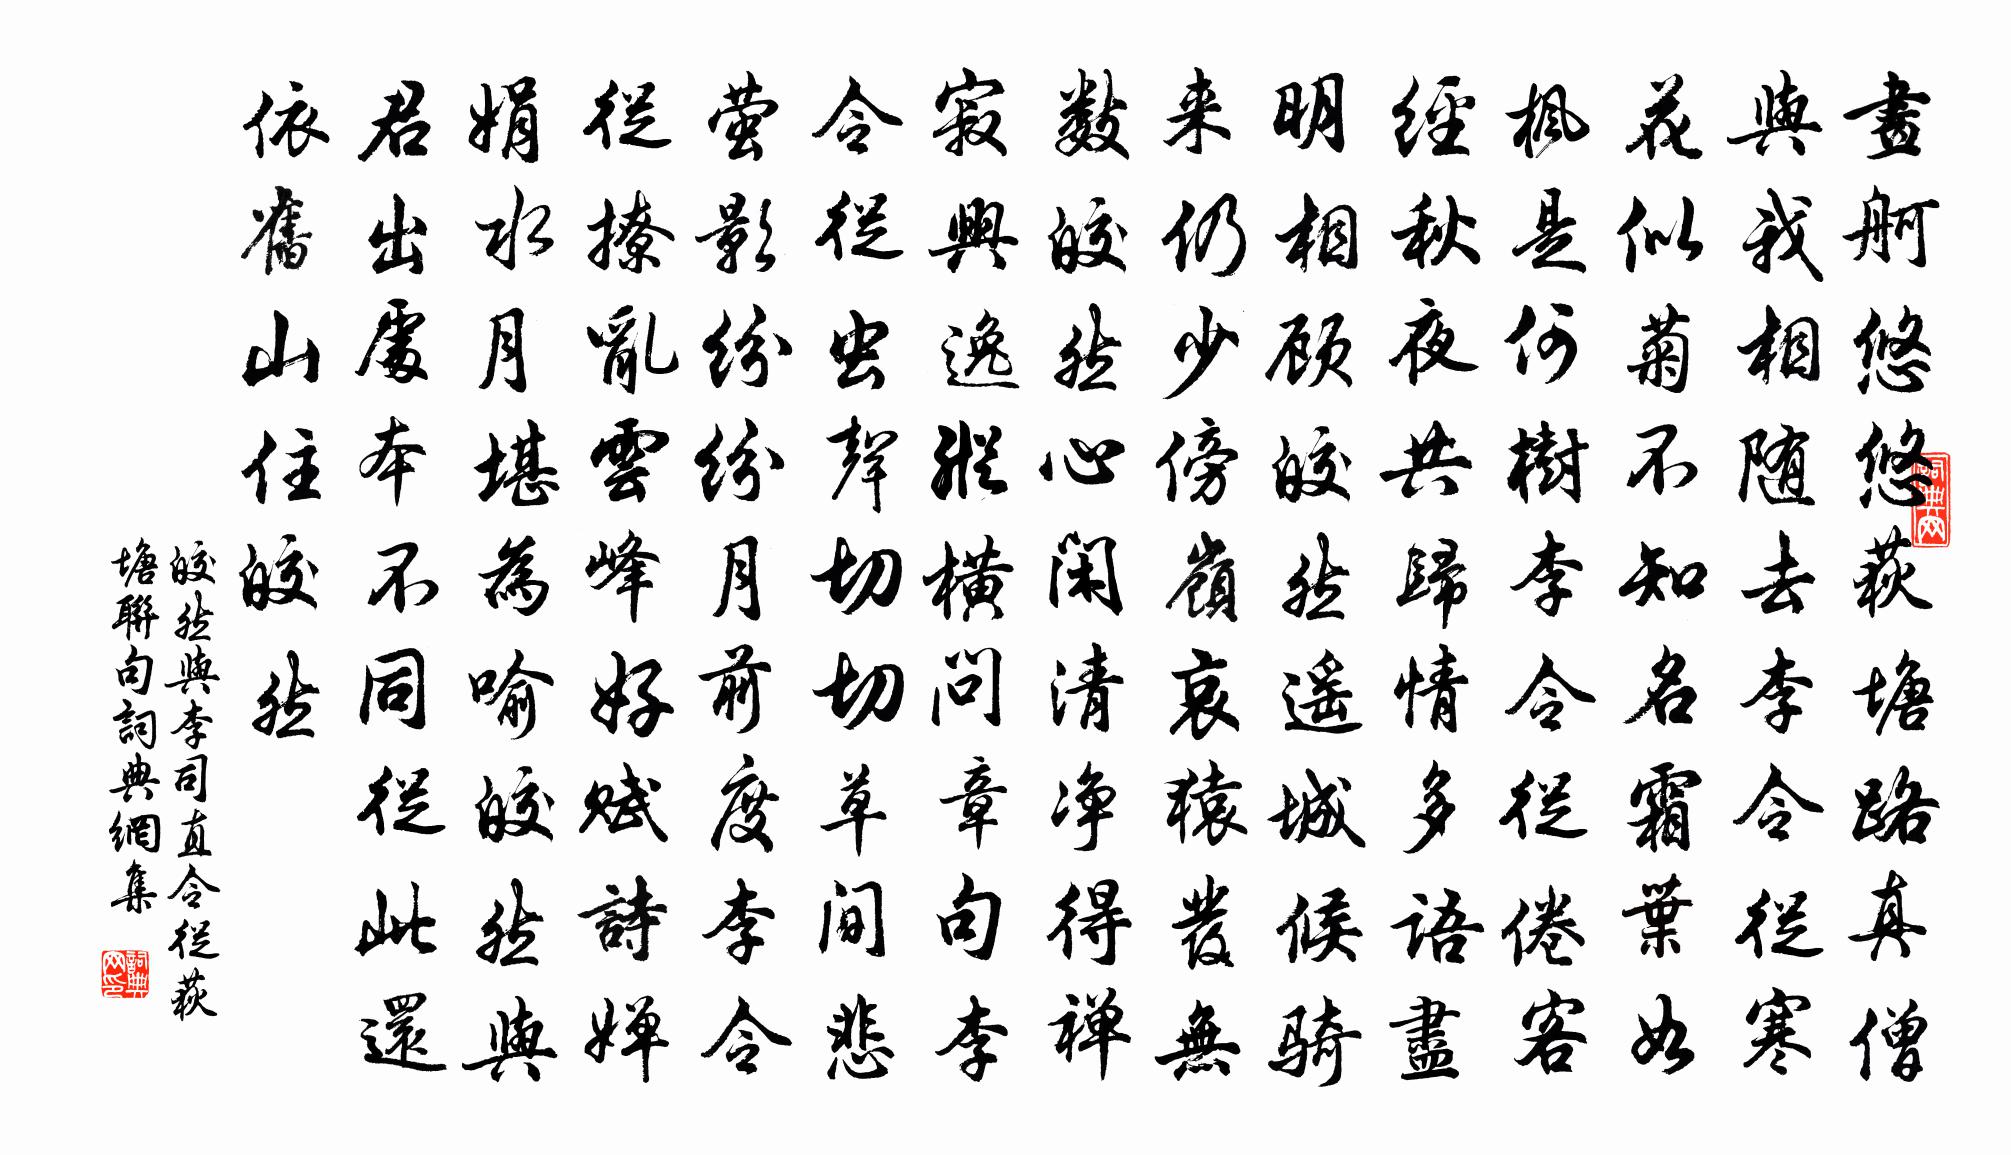 畫舸悠悠荻塘路真僧
與我相随去李令從寒
花似菊不知名霜葉如
楓是何樹李令從倦客
經秋夜共歸情多語盡
明相顾皎然遥城候骑
来仍少傍嶺哀猿發無
數皎然心闲清净得禅
寂興逸縱橫問章句李
令從虫聲切切草間悲
萤影紛紛月前度李令
從撩亂雲峰好赋詩婵
娟水月堪為喻皎然與
君出處本不同從此還
依舊山住皎然
皎然與李司直令從荻
塘聯句詞典網集
詞典网
詞典网印